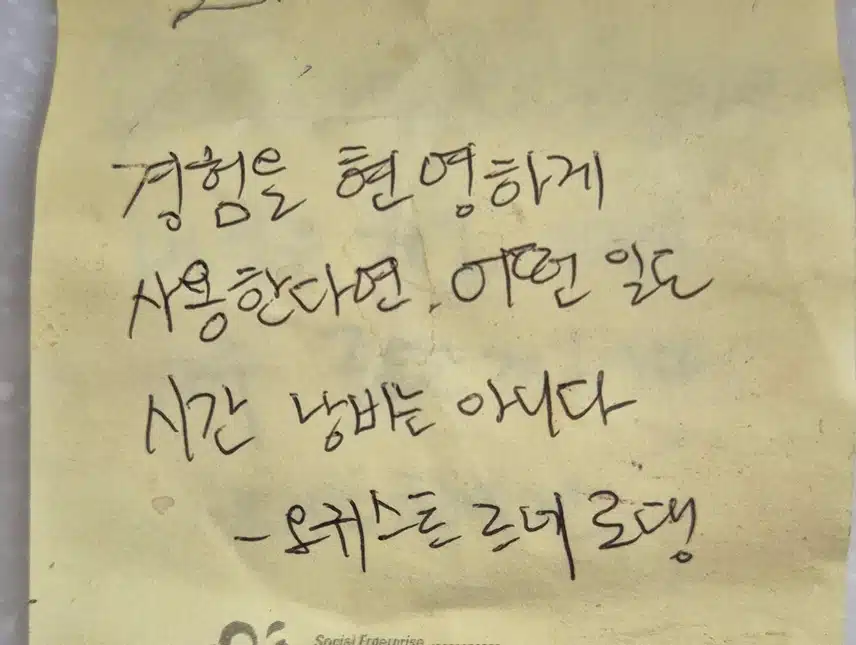 경험을 현명하게
사용한다면, 어떤 일도
시간 낭비는 아니다
- 오귀스트 르네 로댕
Social Enterprise